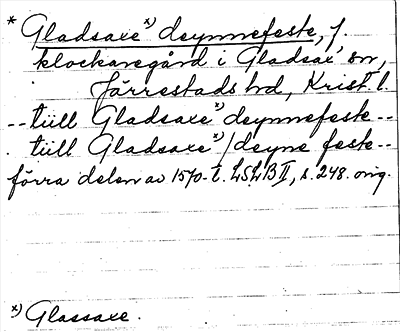 * Gladsaxe ˣ⁾ deynnefeste, f.
klockaregård i Gladsax' sn,
Järrestads hd, Krist. l.
-- tiill Gladsaxe ˣ⁾ deynnefeste --
. tiill Gladsaxe ˣ⁾ / deyne feste --
förra delen av 1570-t. LSLB II, s. 248. orig.
ˣ⁾ Glassaxe.